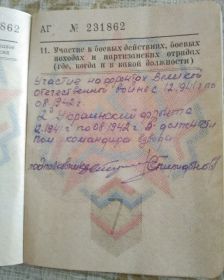 АГ № 231862
11. Участие в боевых действиях, боевых
походах и партизанских отрядах
(где, когда и в какой должности)
Участие на фронтах Великой
отечественной войне с 12.941 г по
08.942 г.
2 Украинского фронта
12.1941 г по 08.1942 г в должности
пом командира взвода